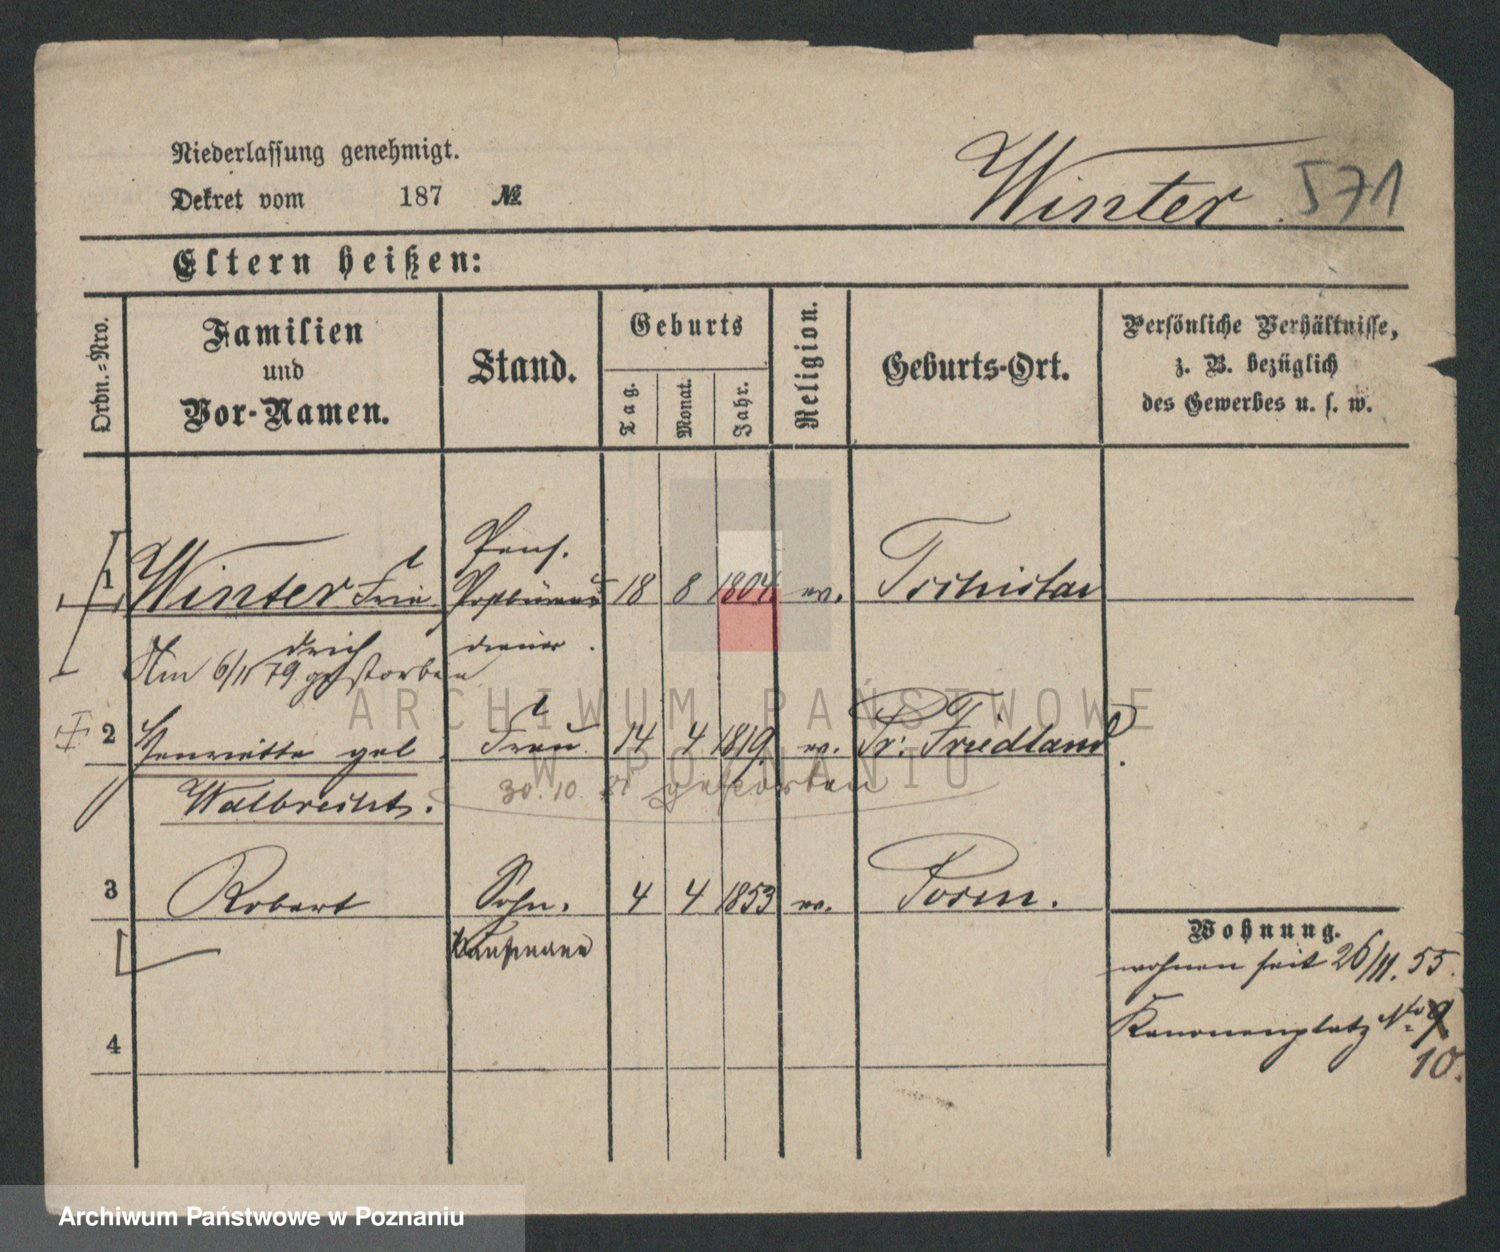 Niederlassung genehmigt.
Dekret vom 187 №
Winter 571
Eltern heißen:
Ordn.=Nro.
Familien
und
Vor-Namen.
Stand.
Geburts
Tag.
Monat.
Jahr.
Religion.
Geburts-Ort.
Persönliche Verhältnisse,
z. B. bezüglich
des Gewerbes u. s. w.
Pens.
1 Winter Frie- 18 8 1804 ev.
drich diener.
Am 6/11 79 gestorben
2 Henriette geb. Frau 14 4 1819. ev. Pr: Friedland
Walbrecht. 30. 10. gestorben
3 Robert Sohn. 4 4 1853 ev. Posen.
Kaufmann
Wohnung.
wohnen seit 26/11. 55.
Kanonenplatz No 9
10.
4
ARCHIWUM PAŃSTWOWE
W POZNANIU
Archiwum Państwowe w Poznaniu